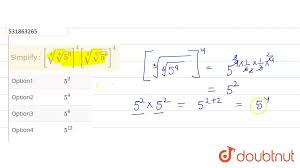 531863265
Simplify : [∛⁶√5⁹]⁴ [⁶√∛5⁹]⁴
Option1 5²
Option2 5⁴
Option3 5⁸
Option4 5¹²
[⁶√∛5⁹]⁴ = 5^(9×1/3×1/6×4)
= 5²
5² × 5² = 5²⁺² = 5⁴
doubtnut